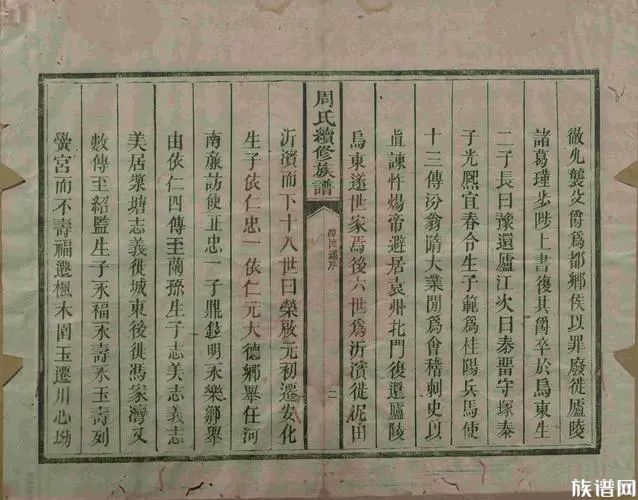 徹先襲父爵為都鄉侯以罪廢徙廬陵
諸葛瑾步陟上書復其爵卒於烏東生
二子長曰豫還廬江次曰泰畱守塚泰
子光熈宜春令生子範為桂陽兵馬使
十三傳汾翁隋大業閒為會稽刺史以
直諫忤煬帝避居袁州北門復還廬陵
烏東遂世家焉後六世為沂濱徙泥田
周氏續修族譜
二
沂濱而下十八世曰榮啟元初遷安化
生子依仁忠一依仁元大德鄉舉任河
南廉訪使正忠一子鼎銘明永樂鄉舉
由依仁四傳至蘭孫生子志美志義志
美居漿塘志義徙城東後徙馮家灣又
數傳至紹監生子永福永壽永玉壽列
黌宮而不壽福遷楓木園玉遷川心坳
族谱网